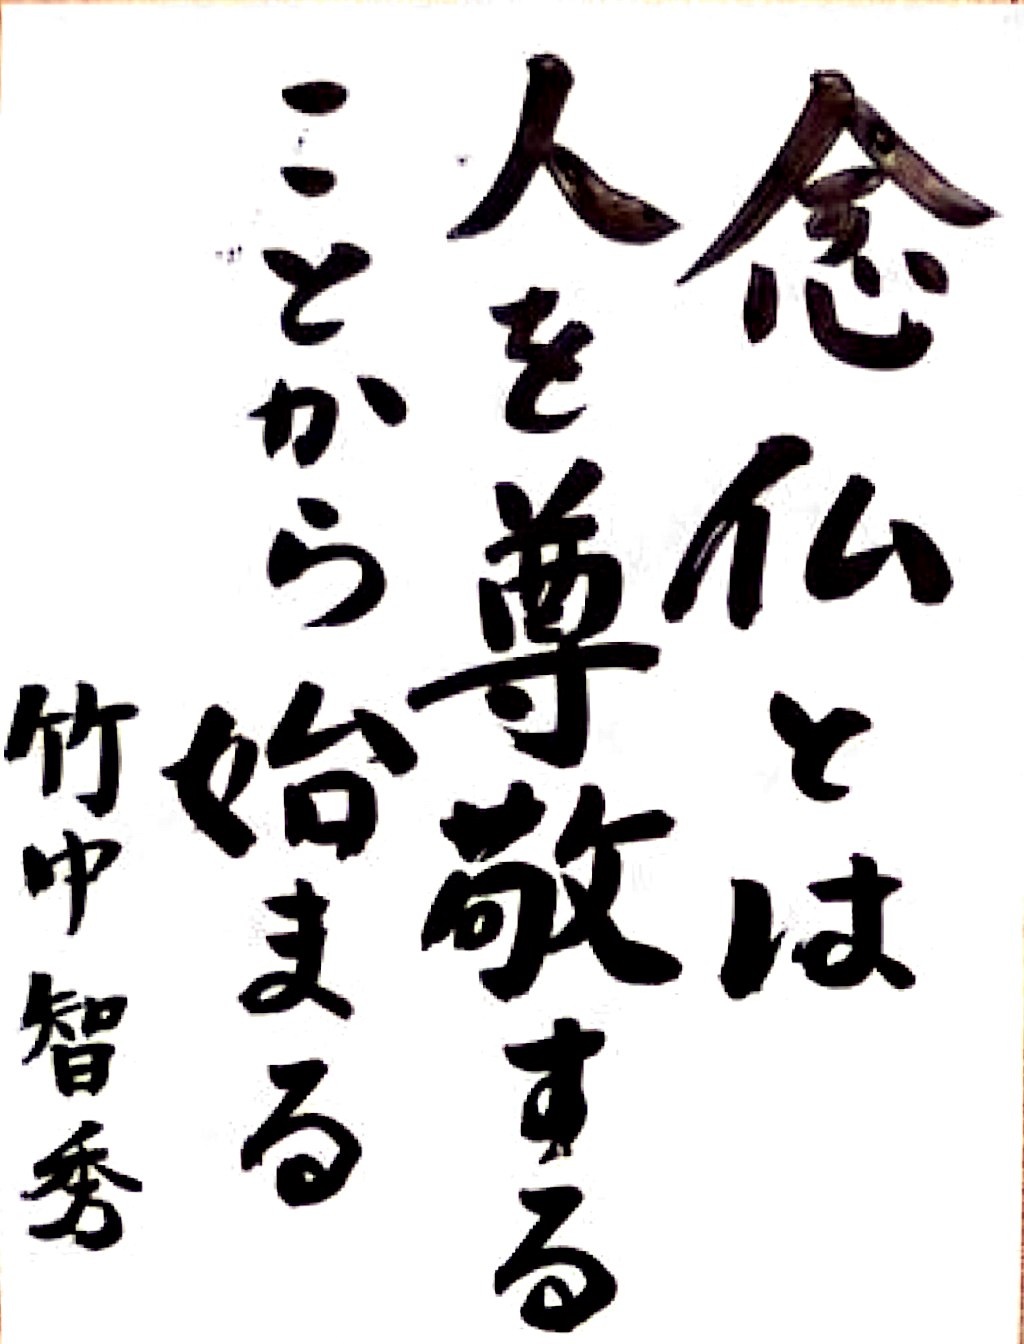 念仏とは
人を尊敬する
ことから始まる
竹中智秀